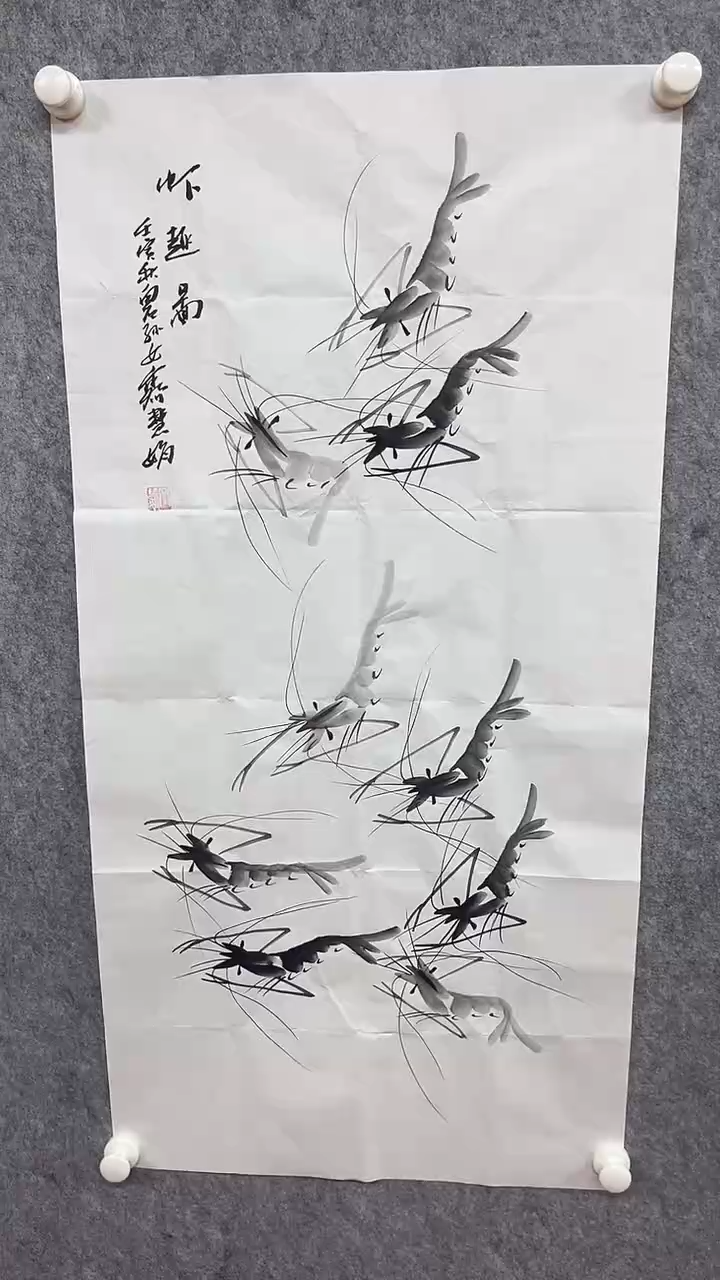 虾趣圖
壬寅秋白石孙女齊慧娟